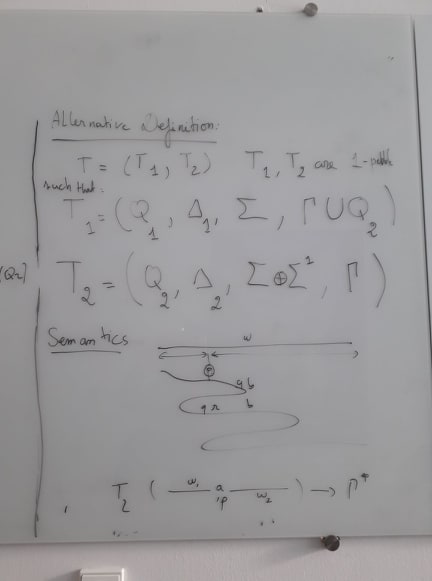 Alternative Definition:
T = (T₁, T₂) T₁, T₂ are 1-pebble
such that:
T₁ = (Q₁, Δ₁, Σ, Γ ∪ Q₂)
(Q₂)
T₂ = (Q₂, Δ₂, Σ⊕Σ¹, Γ)
Semantics
w
q b
q r b
T₂ ( w₁ a, p w₂ ) → Γ*